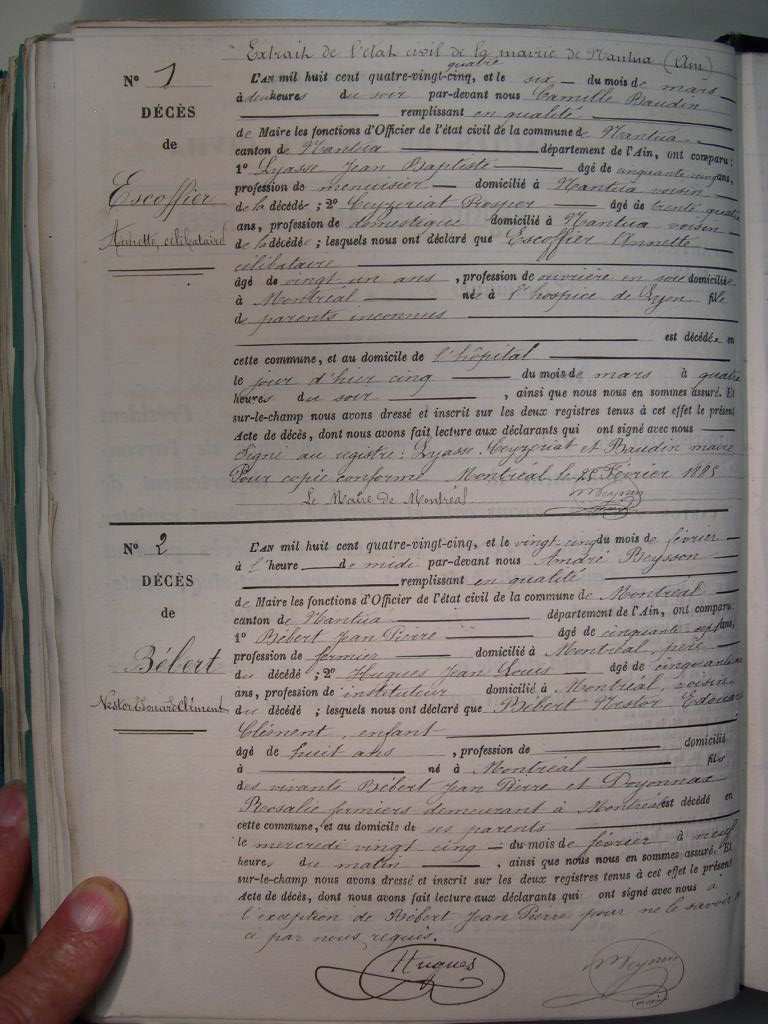 Extrait de l'état civil de la mairie de Nantua (Ain)
N° 1
DÉCÈS
de
Escoffier
Annette, célibataire
L'AN mil huit cent quatre-vingt-cinq, et le six du mois de mars
à quatre heures du soir par-devant nous Camille Baudin
remplissant en qualité
de Maire les fonctions d'Officier de l'état civil de la commune de Nantua
canton de Nantua département de l'Ain, ont comparu :
1° Lyasse Jean Baptiste âgé de cinquante cinq ans,
profession de menuisier domicilié à Nantua voisin
de la décédée ; 2° Ceyzeriat Prosper âgé de trente quatre
ans, profession de domestique domicilié à Nantua voisin
de la décédée ; lesquels nous ont déclaré que Escoffier Annette
célibataire
âgé de vingt un ans , profession de ouvrière en soie domiciliée
à Montréal née à l'hospice de Lyon fille
de parents inconnus
est décédée en
cette commune, et au domicile de l'hôpital
le jour d'hier cinq du mois de mars à quatre
heures du soir , ainsi que nous nous en sommes assuré. Et
sur-le-champ nous avons dressé et inscrit sur les deux registres tenus à cet effet le présent
Acte de décès, dont nous avons fait lecture aux déclarants qui ont signé avec nous
Signé au registre : Lyasse, Ceyzeriat et Baudin maire
Pour copie conforme Montréal le Février 1885
Le Maire de Montréal
N° 2
DÉCÈS
de
Bébert
Nestor Edouard Clément
L'AN mil huit cent quatre-vingt-cinq, et le vingt cinq du mois de février
à l'heure de midi par-devant nous André Reysson
remplissant en qualité
de Maire les fonctions d'Officier de l'état civil de la commune de Montréal
canton de Nantua département de l'Ain, ont comparu :
1° Bébert Jean Pierre âgé de cinquante sept ans,
profession de fermier domicilié à Montréal, père
du décédé ; 2° Hugues Jean Louis âgé de cinquante
ans, profession de instituteur domicilié à Montréal, voisin
du décédé ; lesquels nous ont déclaré que Bébert Nestor Edouard
Clément, enfant
âgé de huit ans , profession de domicilié
à né à Montréal fils
des vivants Bébert Jean Pierre et Doyonnax
Rosalie fermiers demeurant à Montréal est décédé en
cette commune, et au domicile de ses parents
le mercredi vingt cinq du mois de février à neuf
heures du matin , ainsi que nous nous en sommes assuré. Et
sur-le-champ nous avons dressé et inscrit sur les deux registres tenus à cet effet le présent
Acte de décès, dont nous avons fait lecture aux déclarants qui ont signé avec nous à
l'exception de Bébert Jean Pierre pour ne le savoir
ci par nous requis.
Hugues